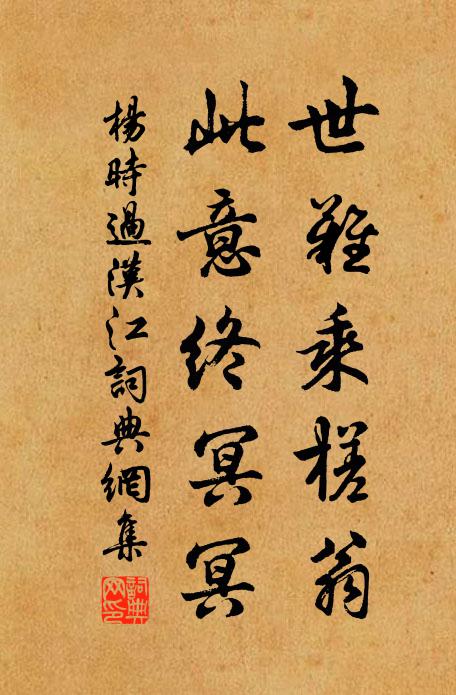 世難乘槎翁
此意終冥冥
楊時過漢江詞典網集
詞典網印